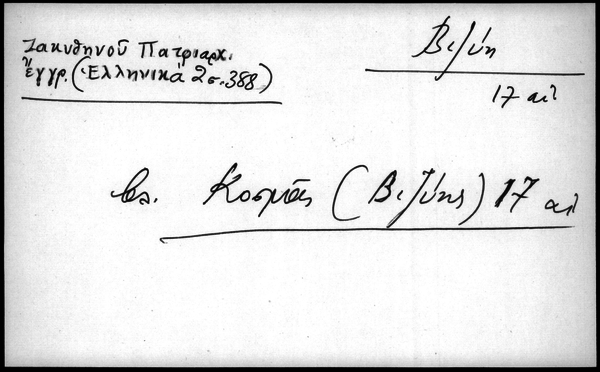 Ζακυθηνοῦ Πατριαρχ.
ἔγγρ. (Ἑλληνικά 2 σ. 388)
Βιζύη
17 αἰ
βλ. Κοσμᾶς (Βιζύης) 17 αἰ